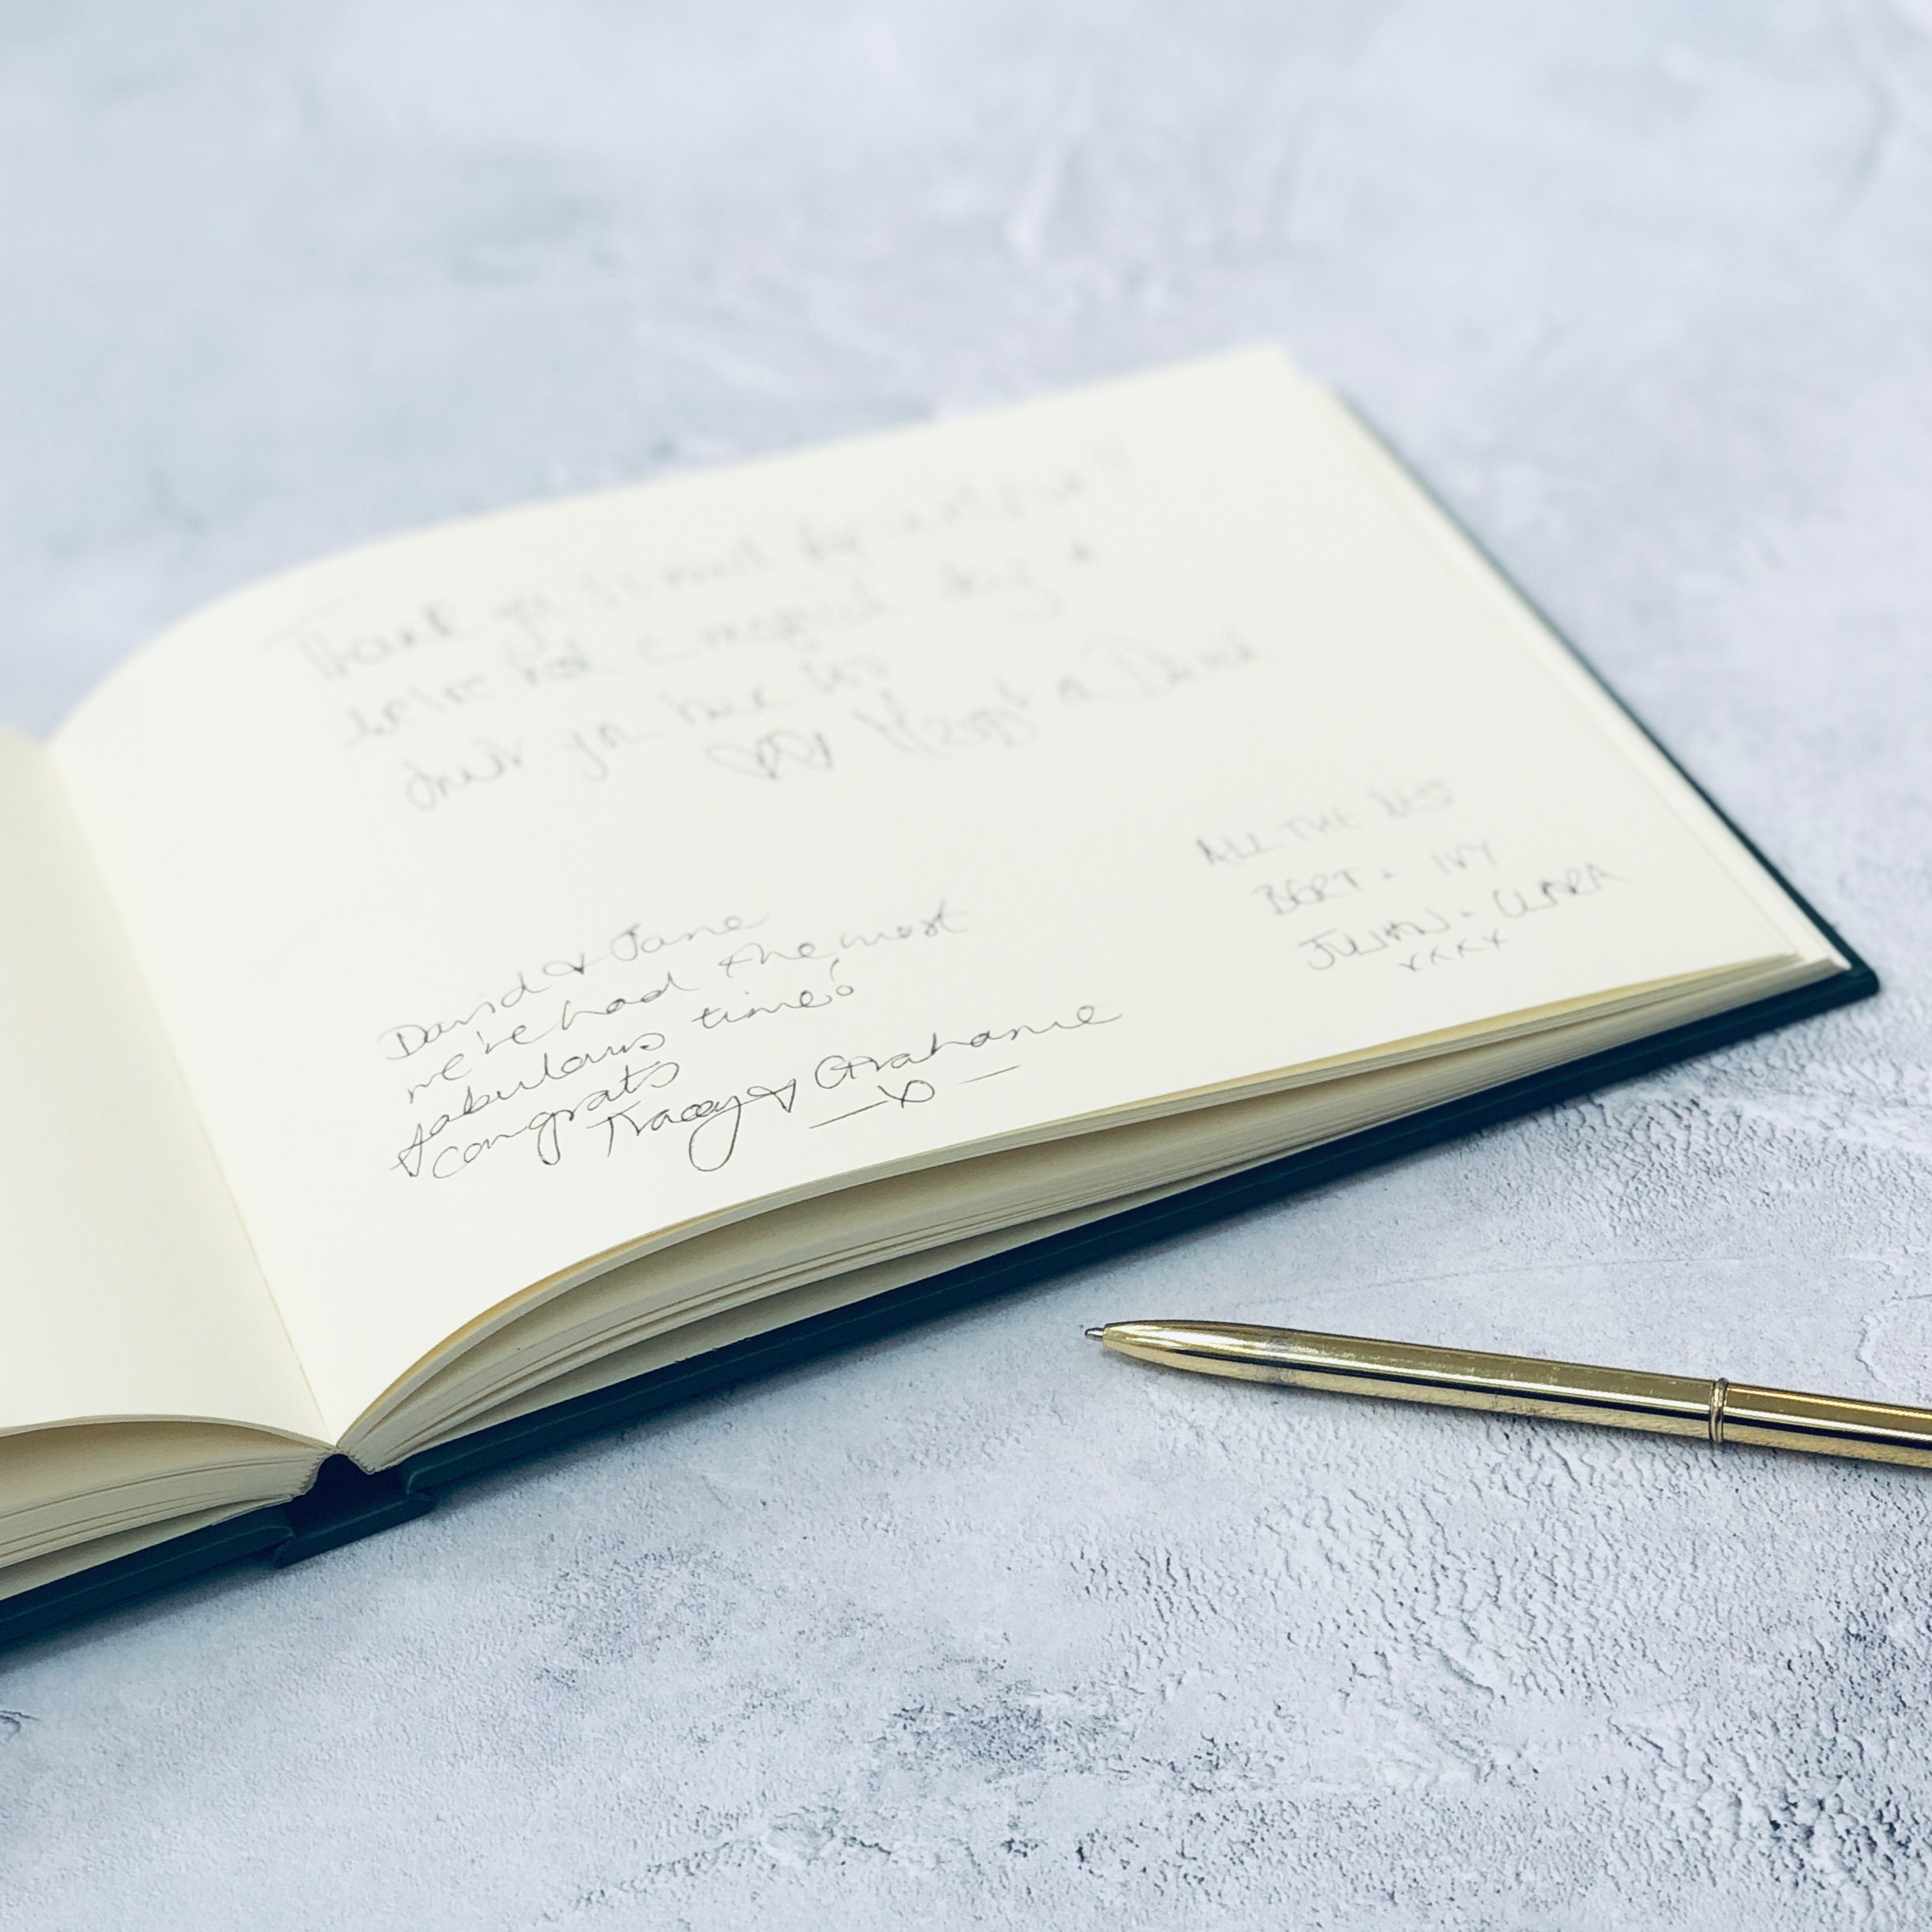 Thank you so much for
we've had a magical day &
you
& David
ALL THE BEST
BERT + IVY
JULIAN + CLARA
xxxx
David & Jane
we've had the most
fabulous time!
congrats
Tracey & Grahame
x